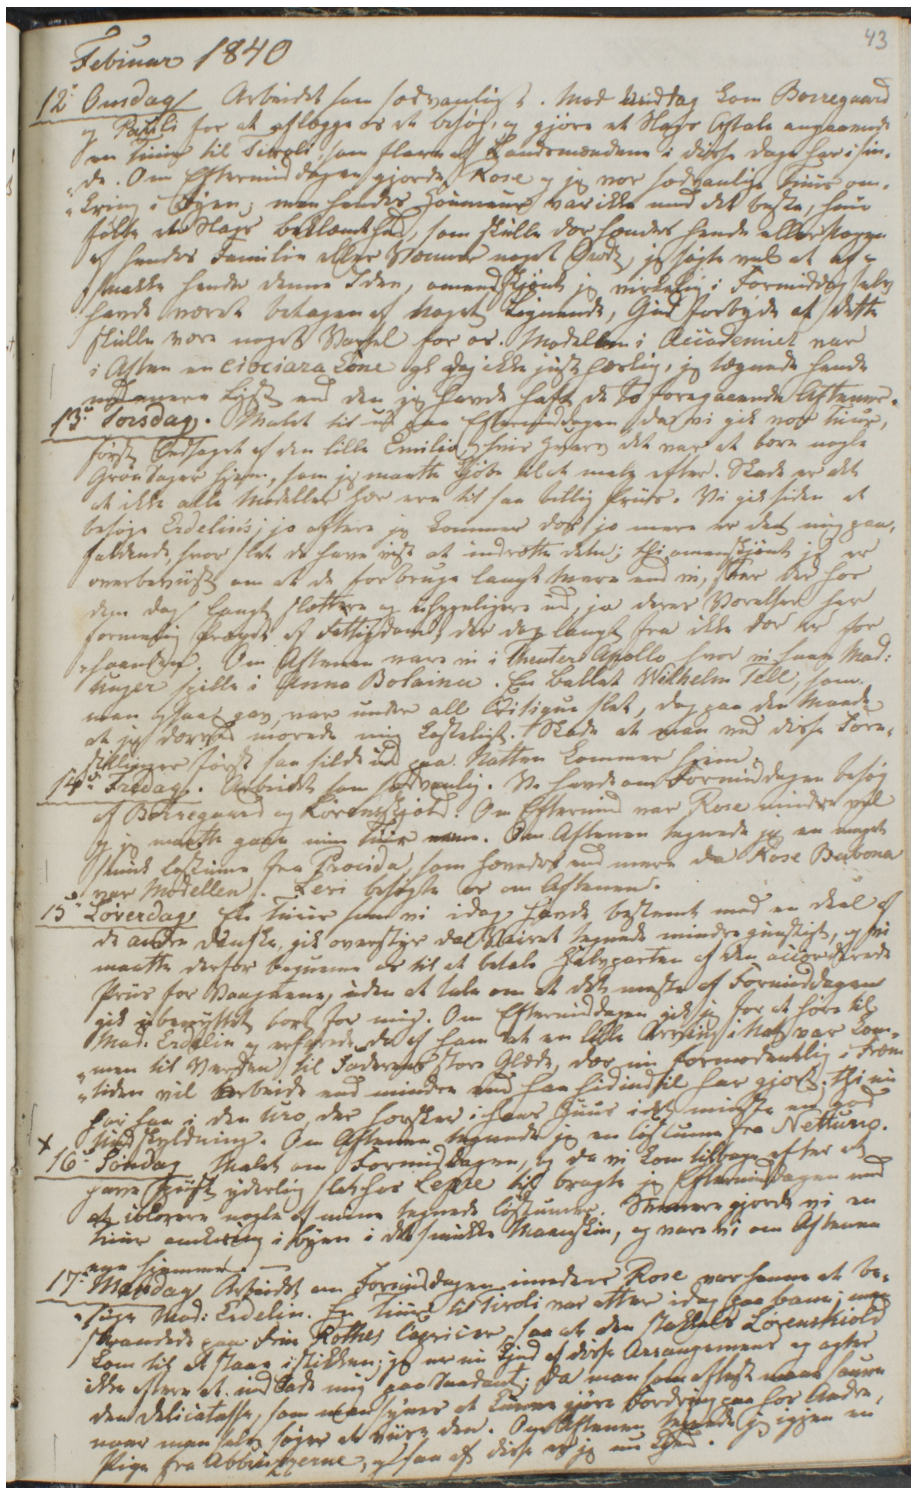 43
Februar 1840
12. Onsdag Arbeidet som sædvanligt. Mod Middag kom Borregaard
og for at aflægge os et besøg, og gjøre et Slags Aftale angaaende
en Tuur til Tivoli, som flere af Landsmændene i disse Dage har i sin-
de. Om Eftermiddagen gjorde Rose og jeg vor sædvanlige Tuur om-
kring i Byen; men hendes Houmeur var ikke med det beste, hun
følte et Slags Beklemthed, som skulle der hændes hende eller Nogen
af hendes Familie eller Venner noget Ondt, jeg søgte vel at af-
snakke hende denne Idee, omendskjønt jeg virkelig i Formiddag selv
havde været betagen af noget Lignende, Gud forbyde at dette
skulle være noget Varsel for os. Modellen i Academiet var
i Aften en Ciociara Kone dog ikke just færlig, jeg tegnede hende
med mere Lyst end den jeg havde haft de to foregaaende Aftener.
13. Torsdag. Malet til ud paa Eftermiddagen, da vi gik vor Tuur,
først ledsaget af den lille Emilia, hvis Hverv det var at bære nogle
Grøntsager hjem, som jeg maatte kjøbe til at male efter. Skade er det
at ikke alle Modeller her ere til saa billig Priis. Vi gik siden at
besøge Erdelins; jo oftere jeg kommer der, jo mere er det mig paa-
faldende, hvor slet de have vist at indrette dem; thi omendskjønt jeg er
overbeviist om at de forbruge langt mere end vi, seer der hos
dem dog langt slettere og uhyggeligere ud, ja deres Værelser har
formelig Præget af Fattigdom der dog langt fra ikke der er for
haanden. Om Aftenen vare vi i Theater Apollo hvor vi saae Mad:
Unger spille i Anna Bolaina. En Ballet Wilhelm Tell, som
man ogsaa gav, var under all Critique slet, dog paa den Maade
at jeg derved morede mig kosteligt. Skade at man ved disse Fore-
stillinger først saa sildig ud paa Natten kommer hjem.
14. Fredag. Arbeidet som sædvanlig. Vi havde om Formiddagen besøg
af Borregaard og Lørenskjold. Om Eftermid var Rose mindre vel
og jeg maatte gaae min Tuur ene. Om Aftenen tegnede jeg en meget
smuk Costume fra Procida, som hævedes end mere da Rose Bubona
var Modellen. Levi besøgte os om Aftenen.
15. Løverdag En Tuur som vi idag havde bestemt med en Deel af
de andre Danske, gik overstyr da Veiret tegnede mindre gunstigt, og vi
maatte derfor beqveme os til at betale Halvparten af den accorderede
Priis for Vognene, uden at tale om at det meste af Formiddagen
gik ubenyttet bort for mig. Om Eftermiddagen gik jeg for at høre til
Mad. Erdelin og erfarede da af ham at en lille Arving i Nat var kom-
men til Verden til Faderens store Glæde, der nu formodentlig i Frem-
tiden vil arbeide end mindre end han hidindtil har gjort, thi nu
har han i den Uro, der hersker i hans Huus idet mindste en god
Undskyldning. Om Aftenen tegnede jeg en Costume fra Nettuno.
x 16. Søndag Malet om Formiddagen, og da vi kom tilbage efter at
have spiist yderlig slet hos Lepre tilbragte jeg Eftermiddagen med
at colorere nogle af mine tegnede Costumer. Senere gjorde vi en
Tuur omkring i Byen i det smukke Maaneskin, og vare vi om Aftenen
ene hjemme.
17. Mandag Arbeidet om Formiddagen imedens Rose var henne at be-
søge Mad: Erdelin. En Tuur til Tivoli var atter idag paa bane; men
strandede paa Frue Rothes Capricer, saa at den stakkels Lørenskiold
kom til at staae i stikken; jeg er nu kjed af disse Arrangemens og agter
ikke oftere at indlade mig paa Saadant; da man som oftest maae savne
den Delicatesse, som man synes at kunne gjøre Fordring paa hos Andre,
naar man selv søger at viise den. Om Aftenen tegnede jeg igjen en
Pige fra Abbruzzerne, ogsaa af disse er jeg nu kjed.